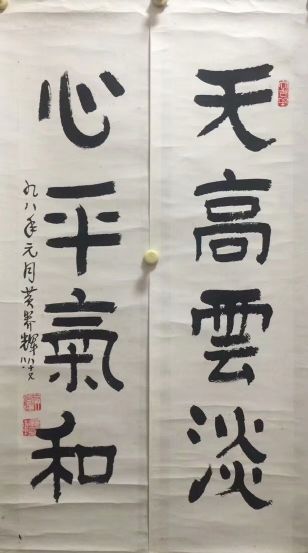 天高雲淡
心平氣和
九八年元月黄养辉